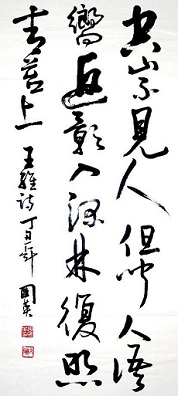 空山不見人但聞人語
響返影入深林復照
青苔上 王維詩 丁丑年